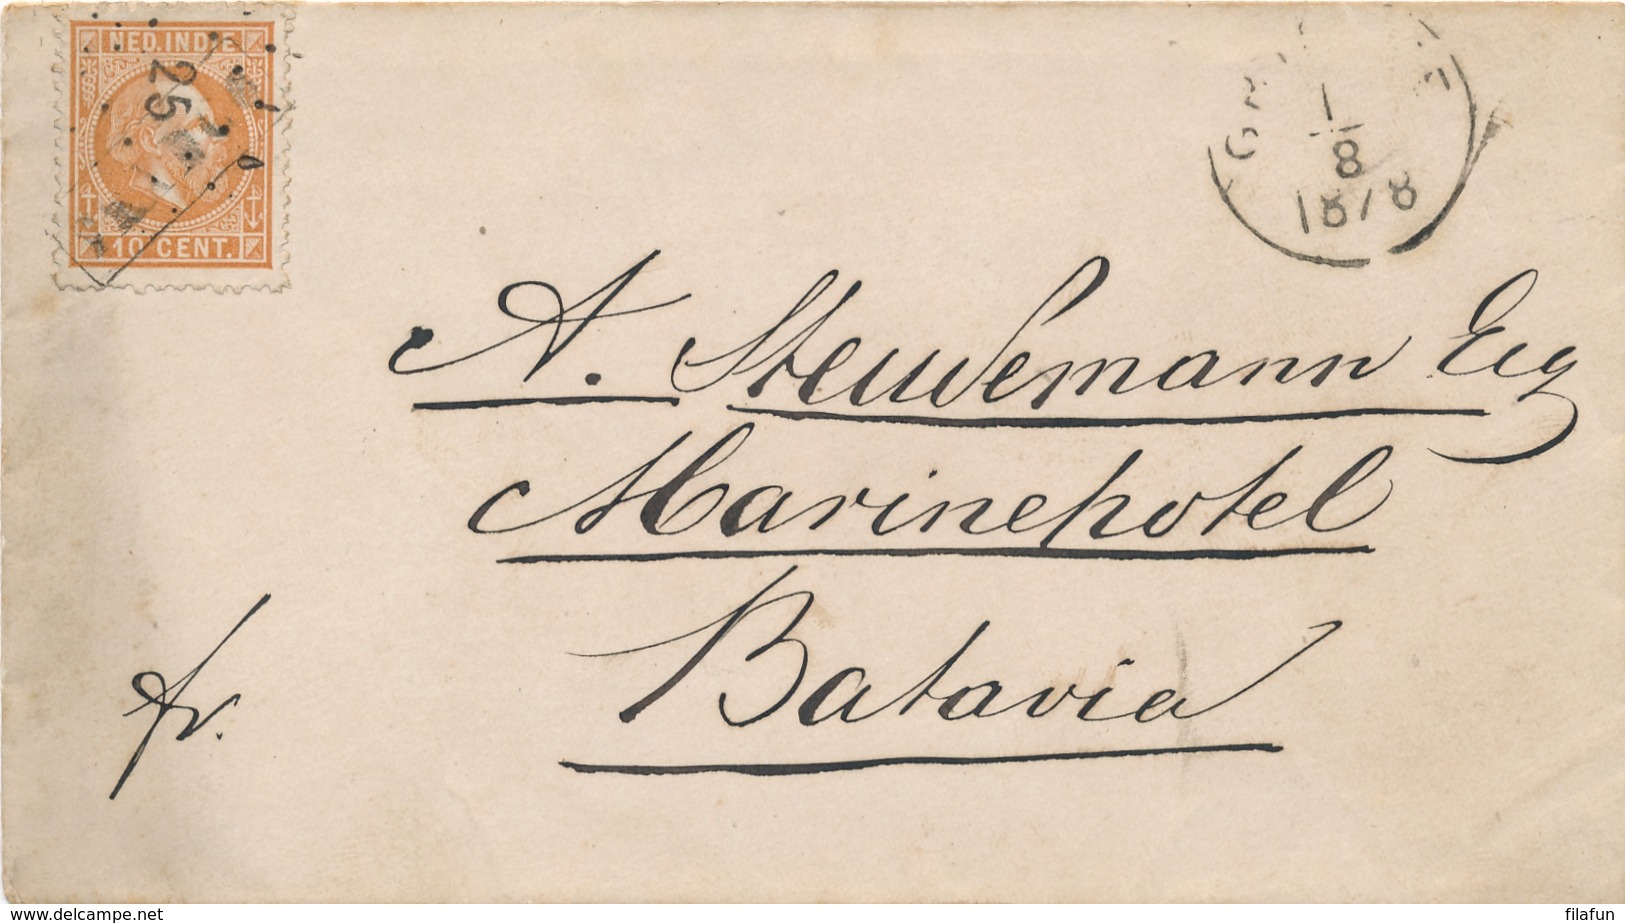 NED. INDIE
25
10 CENT.
1
8
1878
A. Steudemann Esq
Marinehotel
Batavia
fr.
www.delcampe.net
filafun